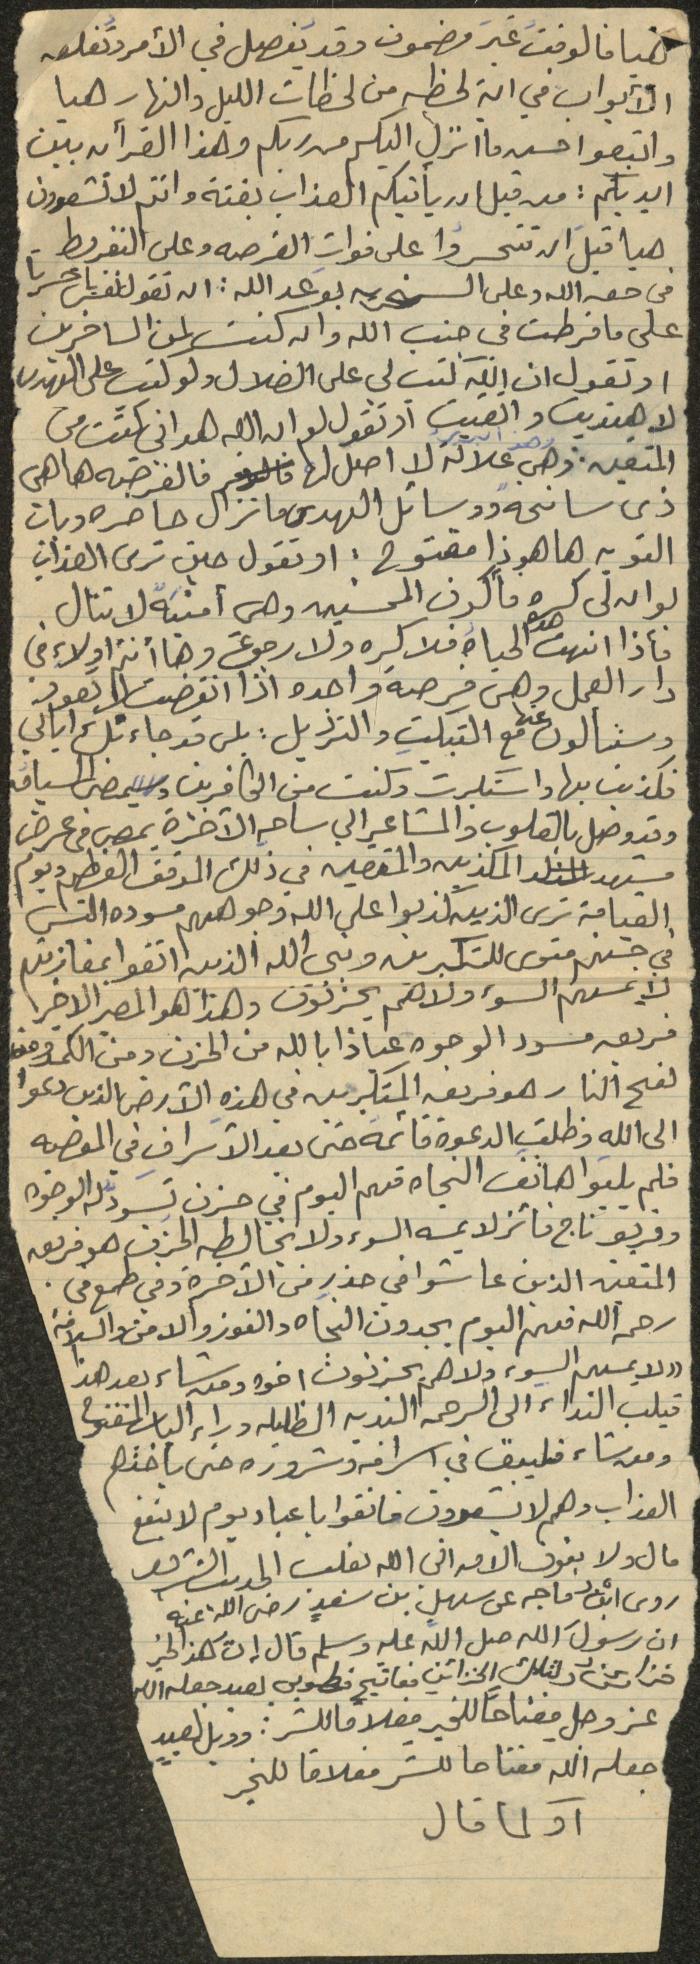 هيا فالوقت غير مضمون وقد يفصل في الأمر وتغلق
الأبواب في اية لحظه من لحظات الليل والنهار هيا
واتبعوا احسن ما انزل اليكم من ربكم وهذا القرآن بين
ايديكم : من قبل ان يأتيكم العذاب بغتة وانتم لا تشعرون
هيا قبل ان تتحسروا على فوات الفرصه وعلى التفريط
في حق الله وعلى السخريه بوعد الله : ان تقول نفس يا حسرتا
على ما فرطت في جنب الله وان كنت لمن الساخرين
او تقول ان الله كتب لي على الضلال ولو كتب على الهدى
لاهتديت واتقيت او تقول لو ان الله هداني لكنت من
المتقين : وهي علالة لا اصل لها فالفرصه ها هي
ذي سانحة ووسائل الهدى ما تزال حاضره وباب
التوبه ها هو ذا مفتوح : او تقول حين ترى العذاب
لو ان لي كره فأكون المحسنين وهي أمنية لا تنال
فأذا انتهت هذه الحياة فلا كره ولا رجوع وها أنتم اولاء في
دار العمل وهي فرصة واحده اذا انقضت لا تعود
وستسألون عنها مع التبكيت والترذيل : بلى قد جاءتك آياتي
فكذبت بها واستكبرت وكنت من الكافرين ويمضي السياق
وقد وصل بالقلوب والمشاعر الى ساحه الآخرة يمضي في عرض
مشهد المكذبين والمتقين في ذلك الموقف العظيم ويوم
القيامة ترى الذين كذبوا على الله وجوههم مسوده اليس
في جهنم مثوى للمتكبرين وينجي الله الذين اتقوا بمفازتهم
لا يمسهم السوء ولا هم يحزنون وهذا هو المصير الاخير
فريق مسود الوجوه عياذا بالله من الحزن ومن الكمد ومن
لفح النار هو فريق المتكبرين في هذه الأرض الذين دعوا
الى الله وظلت الدعوة قائمة حتى بعد الأسراف في المعصيه
فلم يلبوا هاتف النجاه فهم اليوم في حزن تسود له الوجوه
وفريق ناج فائز لا يمسه السوء ولا يخالطه الحزن هو فريق
المتقين الذين عاشوا في حذر من الآخرة وفي طمع في
رحمه الله فهم اليوم يجدون النجاه والفوز والامن والسلامة
«لا يمسهم السوء ولا هم يحزنون اخوه ومن شاء بعد هذا
فيلبي النداء الى الرحمه النديه الظليله وراء الباب المفتوح
ومن شاء فليبق في اسرافه وشروره حتى يأخذهم
العذاب وهم لا يشعرون فاتقوا يا عباد يوم لا ينفع
مال ولا بنون الا من اتى الله بقلب الحديث الشريف
روى ابن ماجه عن سهل بن سعد رضي الله عنه
ان رسول الله صلى الله عليه وسلم قال إن هذا الخير
خزائن ولتلك الخزائن مفاتيح فطوبى لعبد جعله الله
عز وجل مفتاحاً للخير مغلاقا للشر : وويل لعبد
جعله الله مفتاحا للشر مغلاقا للخير
أو كما قال